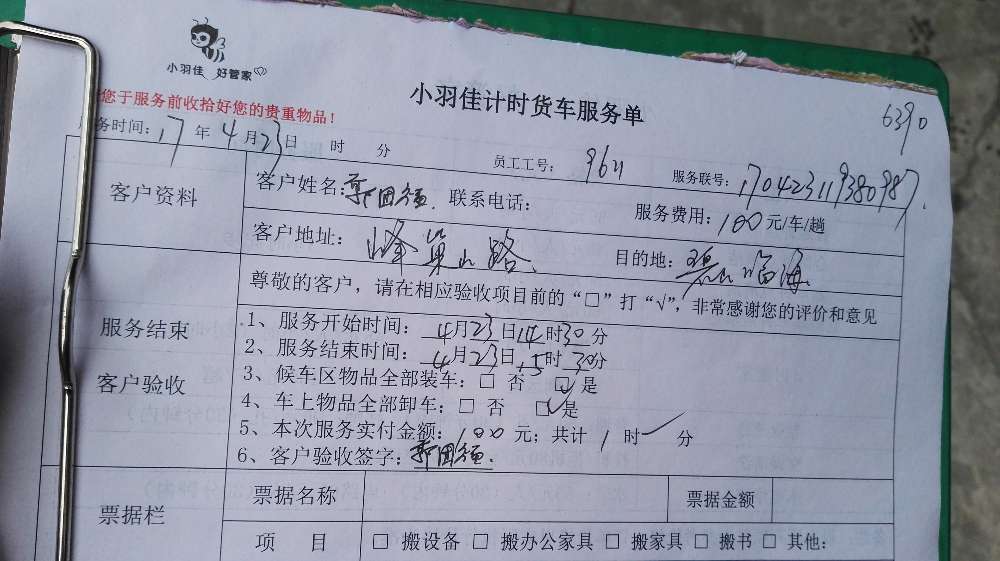 小羽佳 好管家
小羽佳计时货车服务单
6390
您于服务前收拾好您的贵重物品！
务时间：17年4月23日 时 分
员工工号： 9611
服务联号：170423119380987
客户资料
客户姓名： 联系电话： 服务费用：100元/车/趟
客户地址： 峰巢山路 目的地： 临海
服务结束
客户验收
尊敬的客户，请在相应验收项目前的“□”打“√”，非常感谢您的评价和意见
1、服务开始时间：4月23日14时30分
2、服务结束时间：4月23日15时30分
3、候车区物品全部装车：□ 否 ☑是
4、车上物品全部卸车：□ 否 ☑是
5、本次服务实付金额：100元；共计1时 分
6、客户验收签字：
票据栏
票据名称 票据金额
项 目 □ 搬设备 □ 搬办公家具 □ 搬家具 □ 搬书 □ 其他：